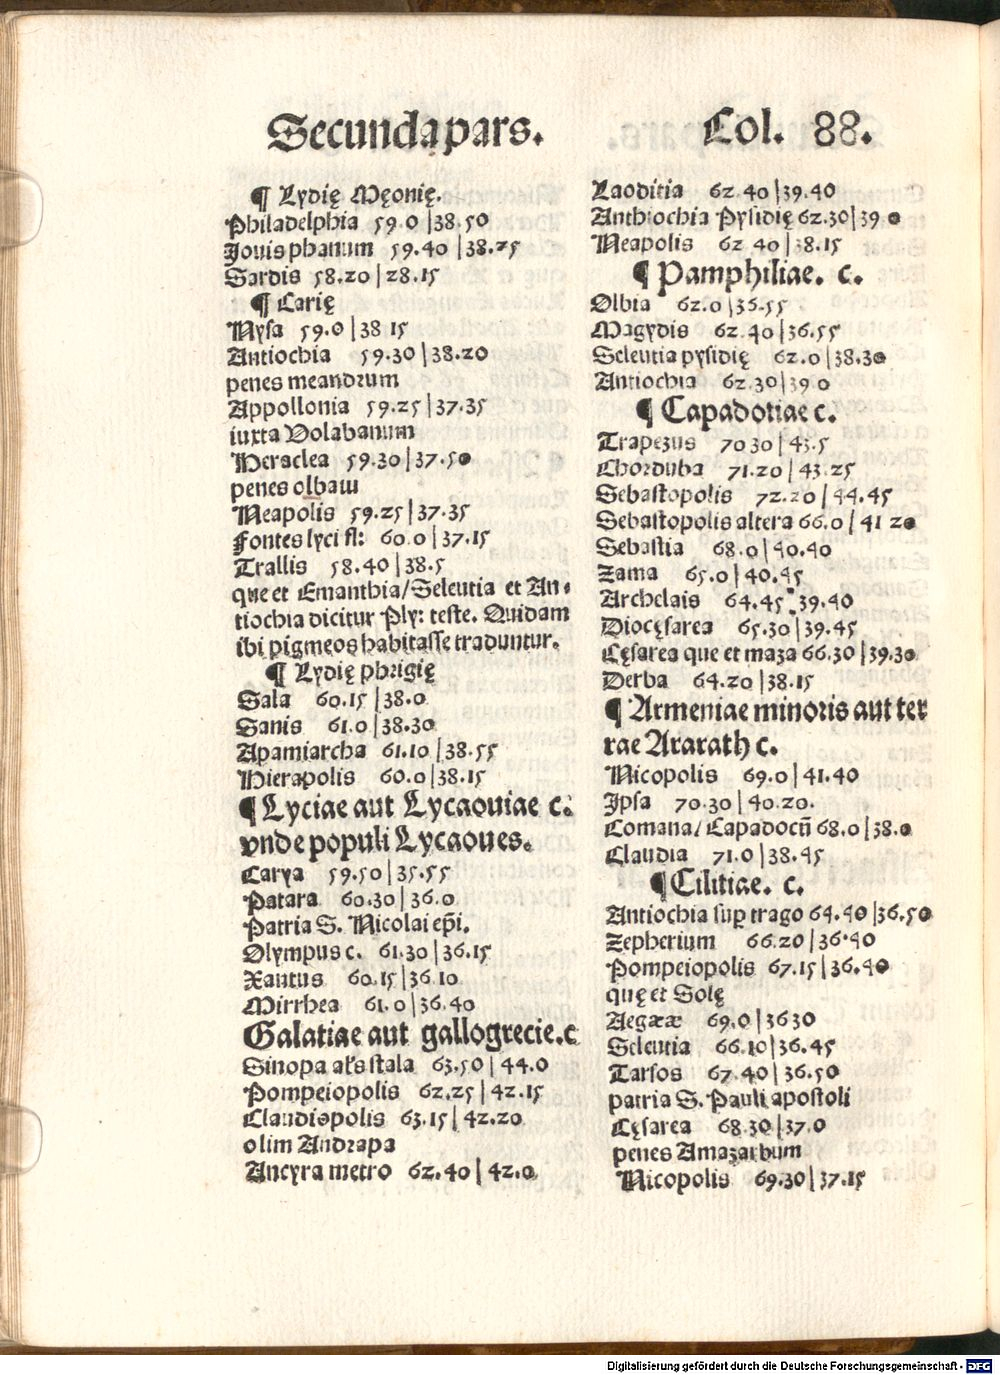 Secunda pars.
Col. 88.
¶ Lydię Męonię.
Philadelphia 59.0 | 38.50
Jouis phanum 59.40 | 38.25
Sardis 58.20 | 28.15
¶ Carię
Nysa 59.0 | 38 15
Antiochia 59.30 | 38.20
penes meandrum
Appollonia 59.25 | 37.35
iuxta Dolabanum
Heraclea 59.30 | 37.50
penes olbaw
Neapolis 59.25 | 37.35
Fontes lyci fl: 60.0 | 37.15
Trallis 58.40 | 38.5
que et Emanthia/Seleutia et An-
tiochia dicitur Ply: teste. Quidam
ibi pigmeos habitasse traduntur.
¶ Lydię phrigię
Sala 60.15 | 38.0
Sanis 61.0 | 38.30
Apamiarcha 61.10 | 38.55
Hierapolis 60.0 | 38.15
¶ Lyciae aut Lycaouiae c.
vnde populi Lycaoues.
Carya 59.50 | 35.55
Patara 60.30 | 36.0
Patria S. Nicolai ep̄i.
Olympus c. 61.30 | 36.15
Xantus 60.15 | 36.10
Mirrhea 61.0 | 36.40
Galatiae aut gallogrecie.c
Sinopa al's stala 63.50 | 44.0
Pompeiopolis 62.25 | 42.15
Claudiopolis 63.15 | 42.20
olim Andrapa
Ancyra metro 62.40 | 42.0
Laoditia 62.40 | 39.40
Anthiochia Pysidię 62.30 | 39 0
Neapolis 62 40 | 38.15
¶ Pamphiliae. c.
Olbia 62.0 | 36.55
Magydis 62.40 | 36.55
Seleutia pysidię 62.0 | 38.30
Antiochia 62.30 | 39 0
¶ Capadotiae c.
Trapezus 70 30 | 43.5
Chorduba 71.20 | 43.25
Sebastopolis 72.20 | 44.45
Sebastopolis altera 66.0 | 41 20
Sebastia 68.0 | 40.40
Zama 65.0 | 40.45
Archelais 64.45 : 39.40
Diocęsarea 65.30 | 39.45
Cęsarea que et maza 66.30 | 39.30
Derba 64.20 | 38.15
¶ Armeniae minoris aut ter
rae Ararath c.
Nicopolis 69.0 | 41.40
Ipsa 70.30 | 40.20.
Comana/Capadocū 68.0 | 38.0
Claudia 71.0 | 38.45
¶ Cilitiae. c.
Antiochia sup trago 64.40 | 36.50
Zepherium 66.20 | 36.40
Pompeiopolis 67.15 | 36.40
quę et Solę
Aegææ 69.0 | 36 30
Seleutia 66.10 | 36.45
Tarsos 67.40 | 36.50
patria S. Pauli apostoli
Cęsarea 68.30 | 37.0
penes Amazarbum
Nicopolis 69.30 | 37.15
Digitalisierung gefördert durch die Deutsche Forschungsgemeinschaft - DFG